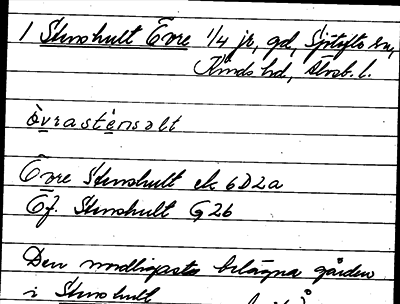 1 Stenshult Övre 1/4 jb, gd, Sjötofta sn,
Kinds hd, Älvsb. l.
òvrasténsolt
Övre Stenshult ek 6D2a
Jf. Stenshult G26
Den nordligaste belägna gården
i Stenshult